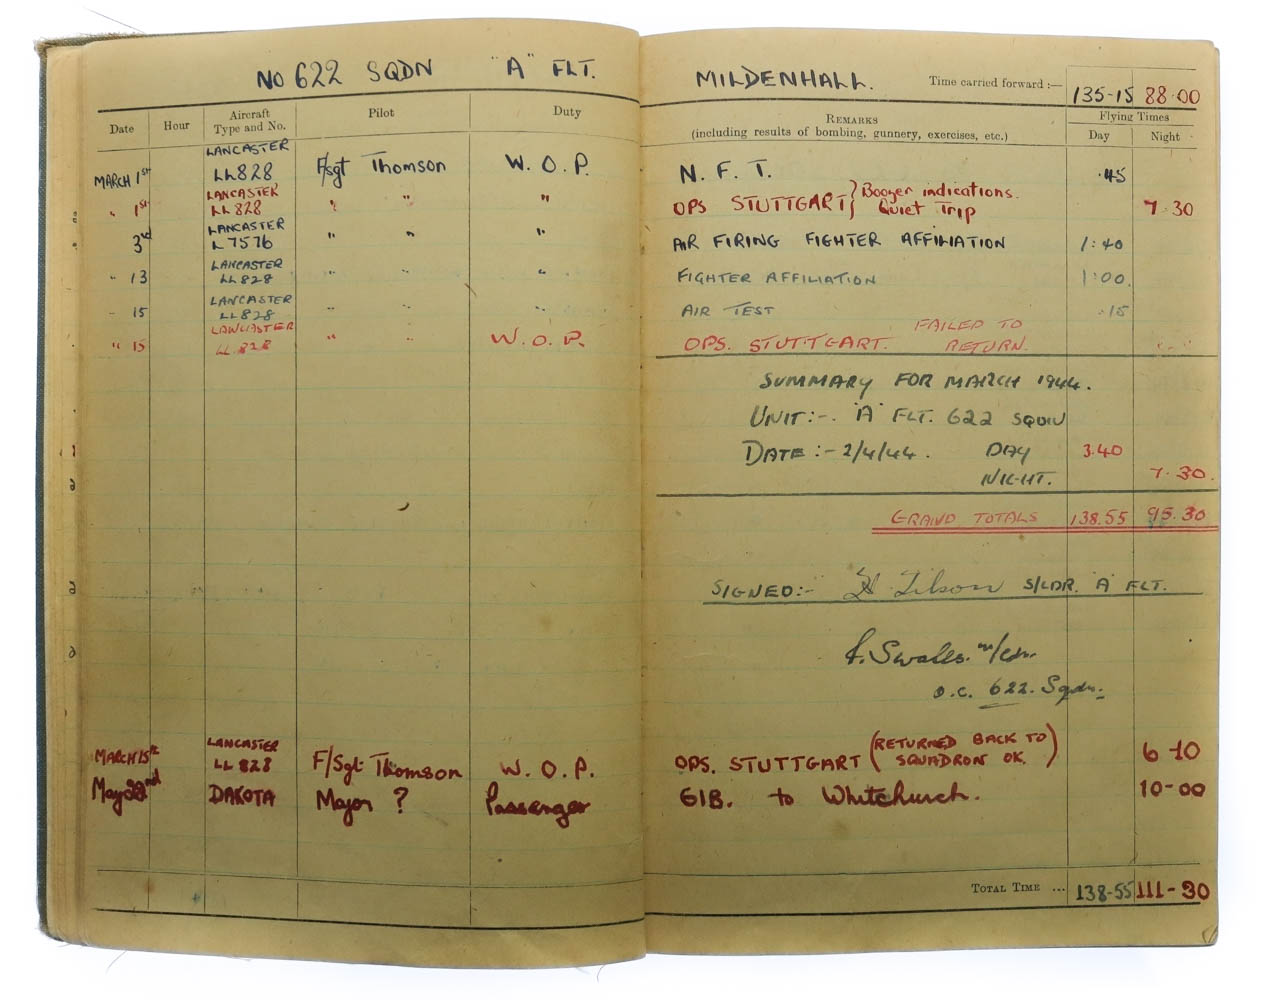 NO 622 SQDN "A" FLT. MILDENHALL. Time carried forward :— 135-15 88.00
Date Hour Aircraft Type and No. Pilot Duty REMARKS (including results of bombing, gunnery, exercises, etc.) Flying Times Day Night
MARCH 1st LANCASTER LL828 F/sgt Thomson W. O. P. N. F. T. .45
" 1st LANCASTER LL828 " " " OPS STUTTGART } Boozer indications. Quiet Trip 7.30
3rd LANCASTER L7576 " " " AIR FIRING FIGHTER AFFILIATION 1:40
" 13 LANCASTER LL828 " " " FIGHTER AFFILIATION 1:00.
" 15 LANCASTER LL828 " " " AIR TEST .15
" 15 LANCASTER LL828 " " W. O. P. OPS. STUTTGART. FAILED TO RETURN.
SUMMARY FOR MARCH 1944.
UNIT:-. "A" FLT. 622 SQDN
DATE:- 2/4/44. DAY 3.40
NIGHT. 7.30.
GRAND TOTALS 138.55 95.30
SIGNED:- Tilson S/LDR. "A" FLT.
Swales. W/Cdr.
O.C. 622. Sqdn.
MARCH 15th LANCASTER LL828 F/Sgt Thomson W. O. P. OPS. STUTTGART (RETURNED BACK TO SQUADRON OK.) 6-10
May 22nd DAKOTA Major ? Passenger GIB. to Whitchurch. 10-00
TOTAL TIME ... 138-55 111-30